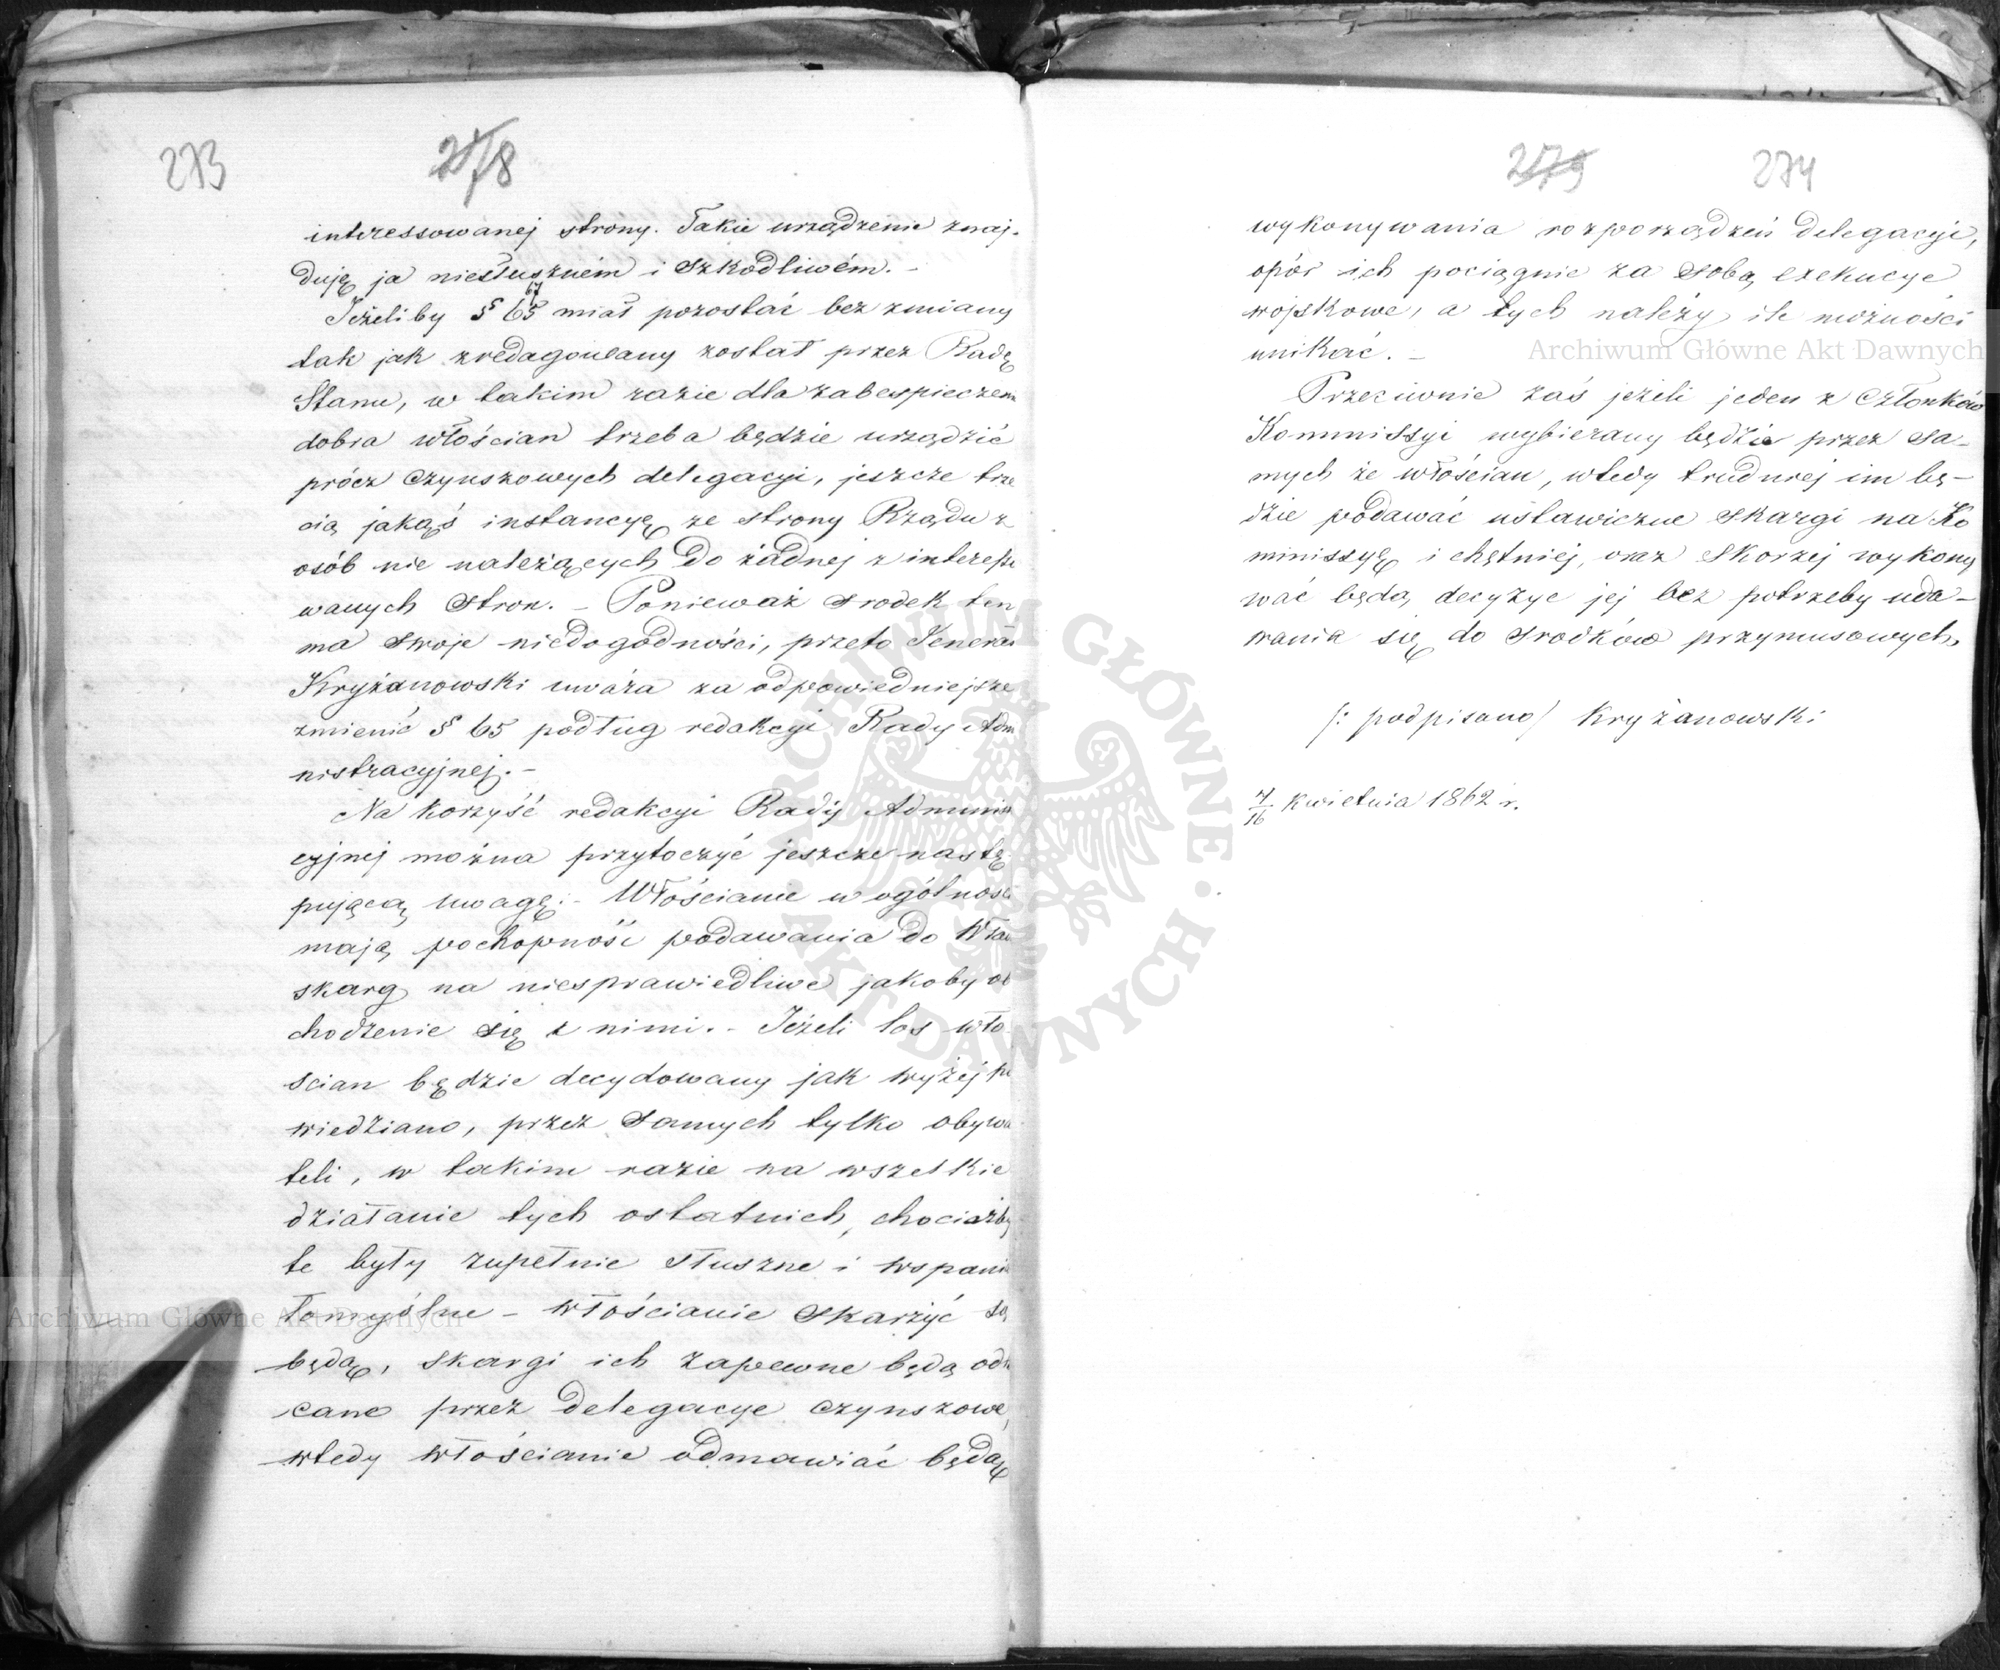 273
278
interessowanej strony. Takie urządzenie znaj-
duję ja niesłuszném i szkodliwém. -
67
Jeżeliby § 65 miał pozostać bez zmiany
tak jak zredagowany został przez Radę
Stanu, w takim razie dla zabezpieczen
dobra włościan trzeba będzie urządzić
prócz czynszowych delegacyi, jeszcze trze
cią jakąś instancyę ze strony Rządu z
osób nie należących do żadnej z interesso
wanych stron. - Ponieważ srodek ten
ma swoje niedogodności, przeto Jenerał
Kryżanowski uważa za odpowiedniejsze
zmienić § 65 podług redakcyi Rady Admi
nistracyjnej. -
Na korzyść redakcyi Rady Adminis
cyjnej można przytoczyć jeszcze nastę-
pującą uwagę: - Włościanie w ogólnosci
mają pochopność podawania do Wład
skarg na niesprawiedliwe jakoby ob
chodzenie się z nimi. - Jeżeli los wło-
scian będzie decydowany jak wyżej po
wiedziano, przez samych tylko obywa
teli, w takim razie na wszelkie
działanie tych ostatnich, chociażby
te były zupełnie słuszne i wspania
łomyślne - włościanie skarżyć się
będą, skargi ich zapewne będą odrz
cane przez delegacye czynszowe,
wtedy włościanie odmawiać będą
279
274
wykonywania rozporządzeń delegacyi,
opór ich pociągnie za sobą exekucye
wojskowe, a tych należy ile możności
unikać. -
Przeciwnie zaś jeżeli jeden z Członków
Kommissyi wybierany będzie przez sa-
mych że włościan, wtedy trudniej im bę-
dzie podawać ustawiczne skargi na Ko
mmissyę i chętniej, oraz skorzej wykony
wać będą decyzye jej bez potrzeby uda-
wania się do srodków przymusowych.
/: podpisano/ Kryżanowski
4/16 kwietnia 1862 r.
Archiwum Główne Akt Dawnych
Archiwum Główne Akt Dawnych
ARCHIWUM GŁÓWNE
AKT DAWNYCH